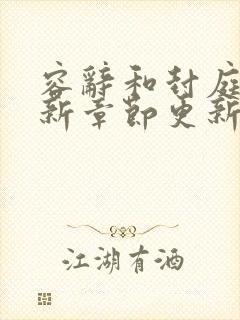 容辭和封庭
新章節更新
江湖有酒